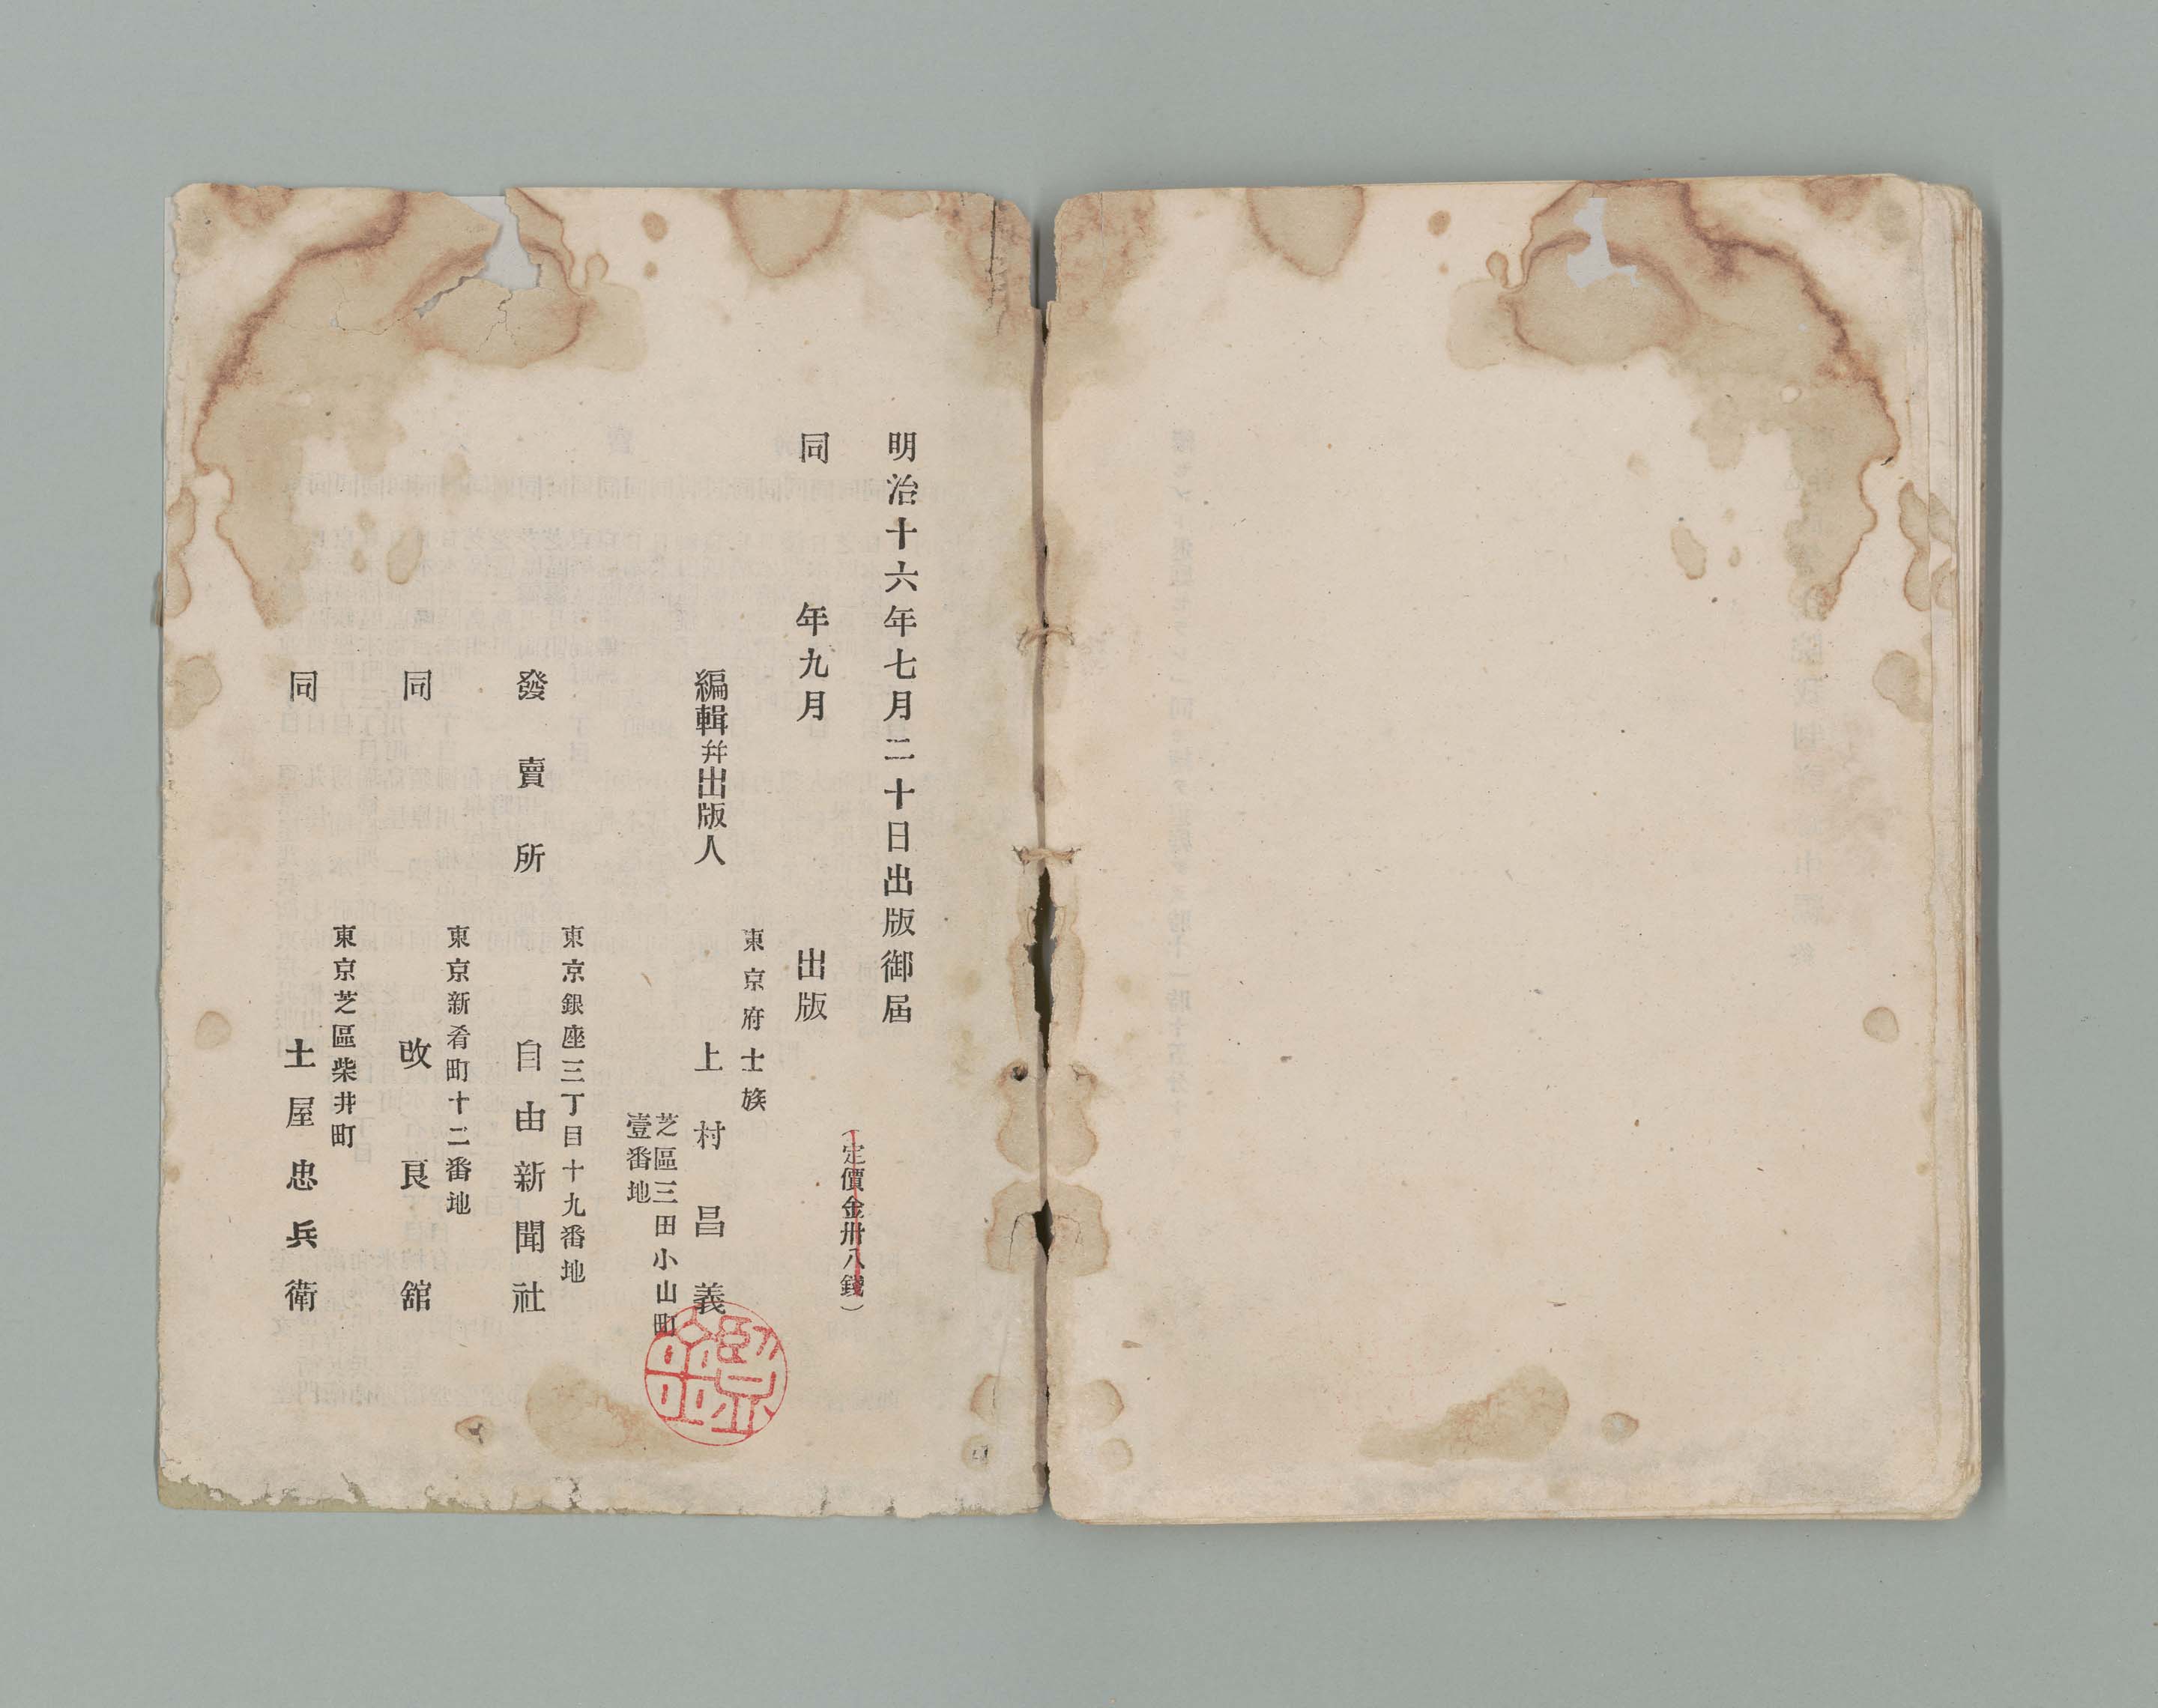 明治十六年七月二十日出版御屆
(定價金卅八錢)
同年九月出版
東京府士族
編輯并出版人 上村昌義
芝區三田小山町
壹番地
東京銀座三丁目十九番地
發賣所 自由新聞社
東京新肴町十二番地
同 改良舘
東京芝區柴井町
同 土屋忠兵衛